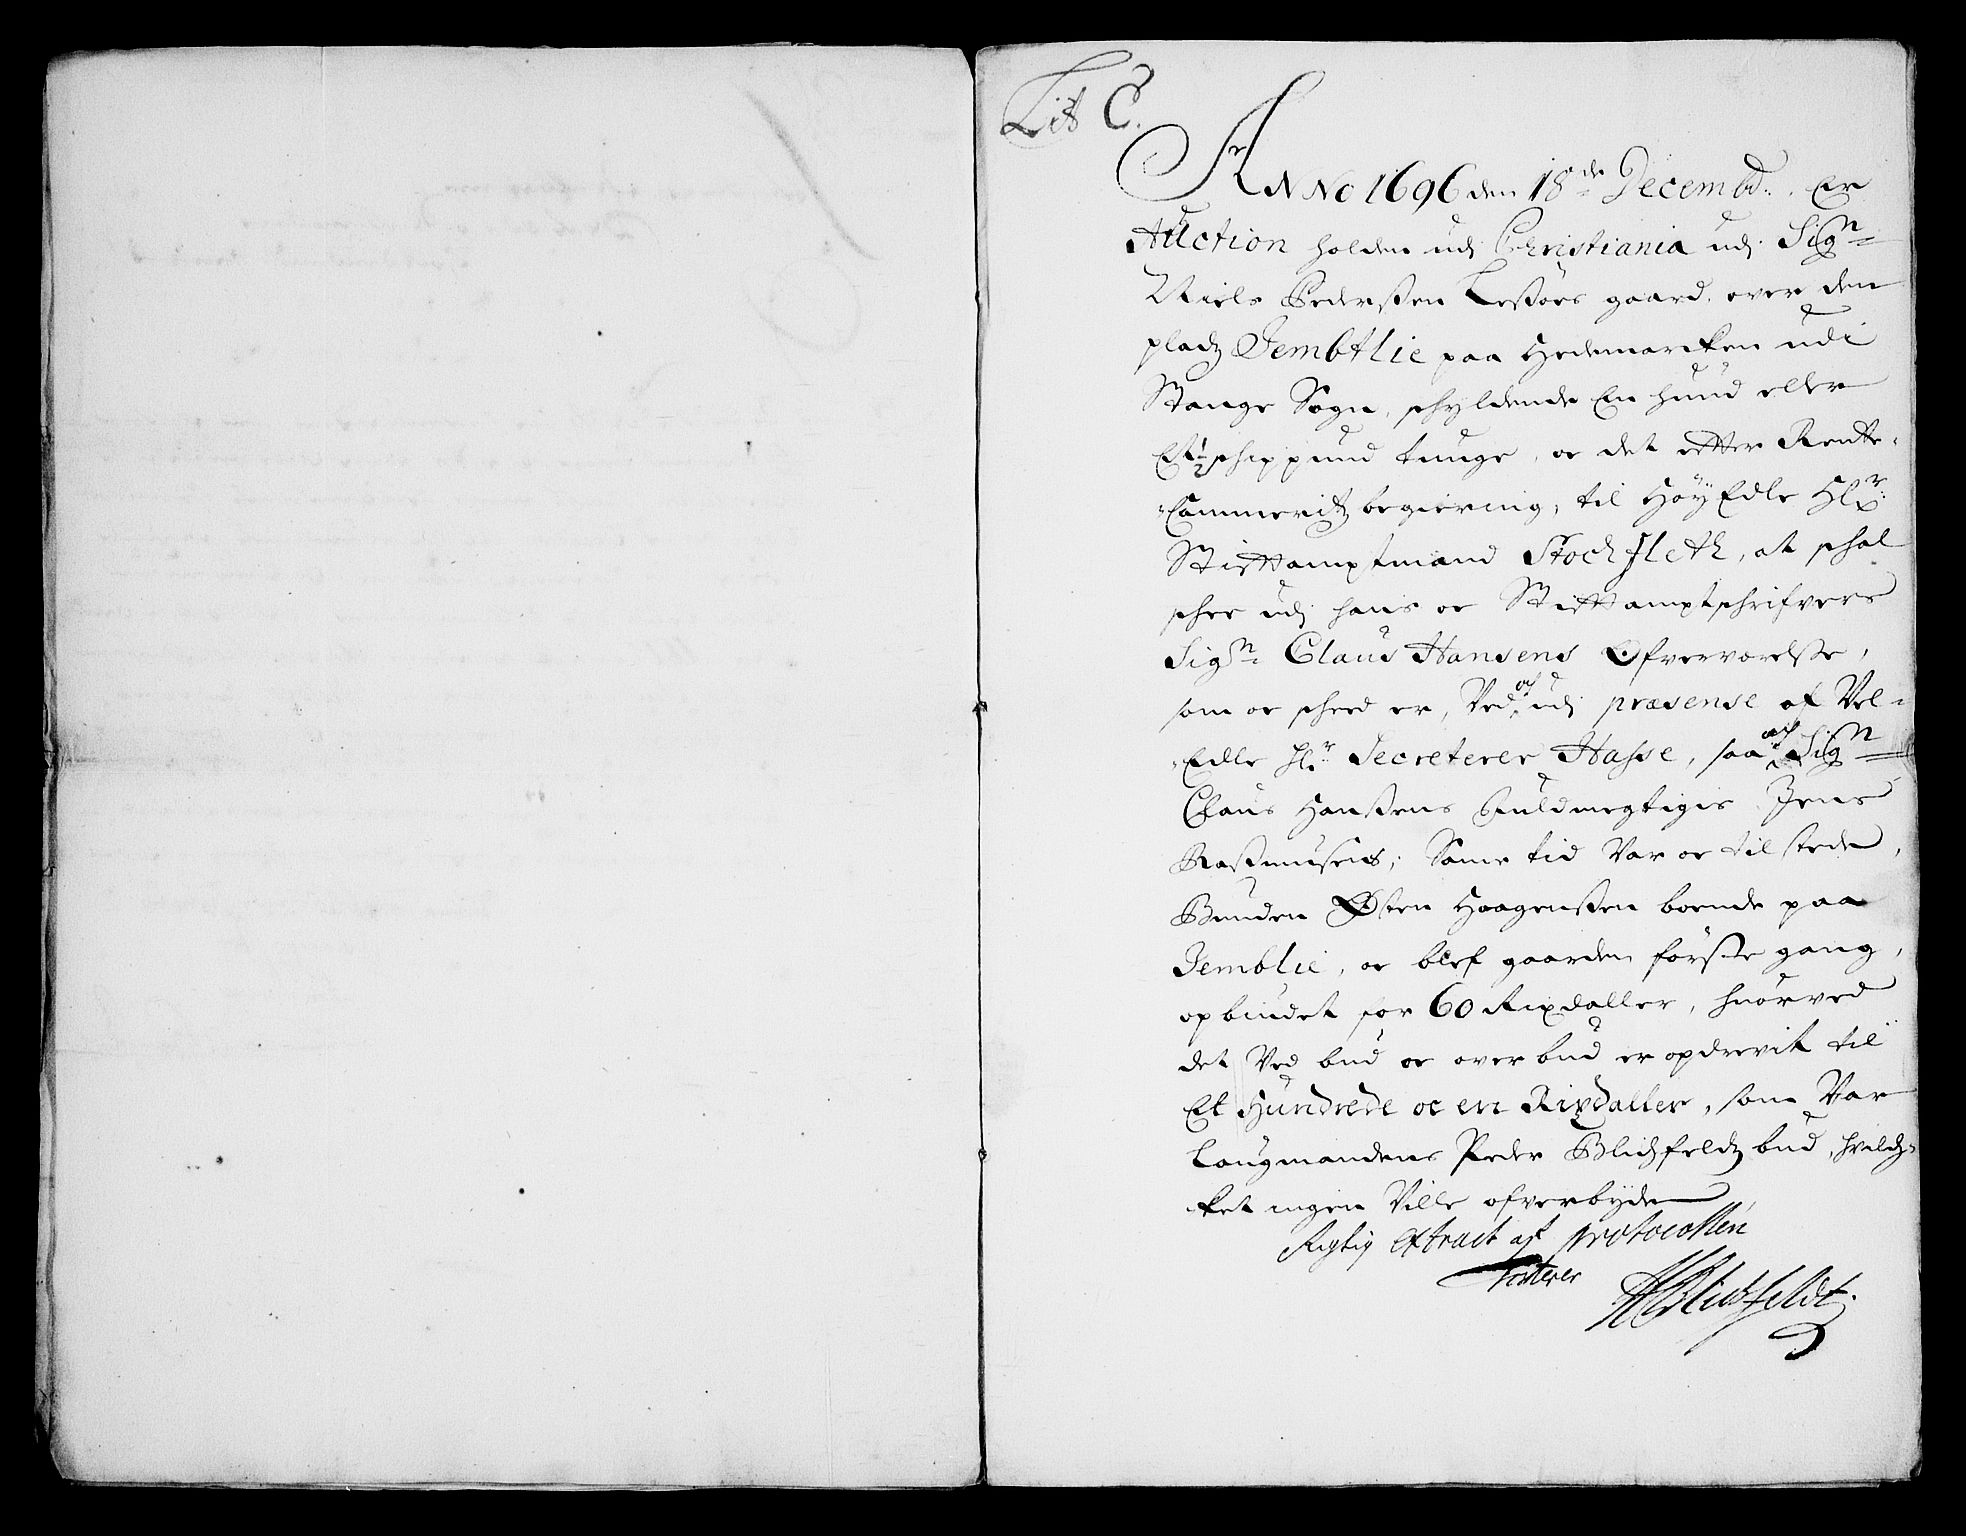 Lit C.
ANNo 1696 den 18de Decembr. Er
Auction holden udj Christiania udj Sign
Niels Pedersßen Leßöes gaard, over den
pladz Jembtlie paa Hedemarcken udi
Stange Sogn, schyldende En huud eller
Et ½ schippund tunge, oc det efter Rente-
-Cammeritz begiering, til HöyEdle Hr
Stiftamptmand Stockfleth, at schal
schee udj hans oc Stiftamptschrifvers
Sign Claus Hansens Ofverværelße,
som oc scheed er, Ved och udj præsense af Vel-
-Edle Hr Secreterer Hasse, saa och Sign
Claus Hanßens Fuldmegtigis Jens
Raßmusens; Same tid Var oc tilstede,
Bunden Østen Haagenßen boende paa
Jemblie, oc blef gaarden förste gang,
opbudet for 60 Rixdaller, huorved
det Ved bud oc overbud er opdrevit til
Et Hundrede oc en Rixdaller, som Var
Laugmandens Peder Blichfeldz bud, hvilch-
ket ingen Ville ofverbyde
Rigtig extract af protocollen
testerer
HBlichfeldt